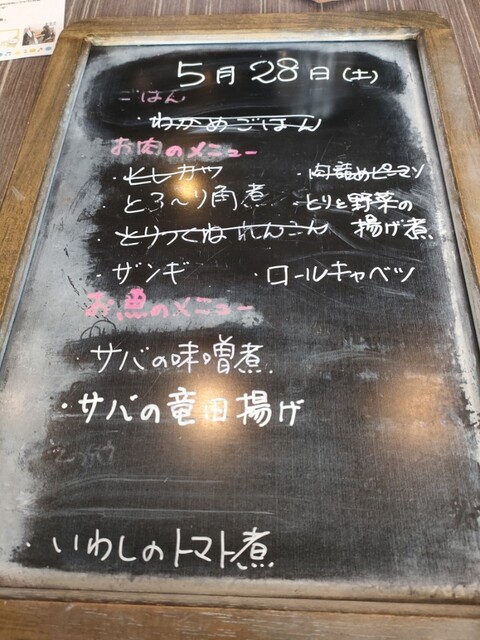 5月28日(土)
ごはん
・わかめごはん
お肉のメニュー
・ヒレカツ ・肉詰めピーマン
・とろ〜り角煮 ・とりと野菜の
揚げ煮
・とりつくねれんこん
・ザンギ ・ロールキャベツ
お魚のメニュー
・サバの味噌煮
・サバの竜田揚げ
・いわしのトマト煮